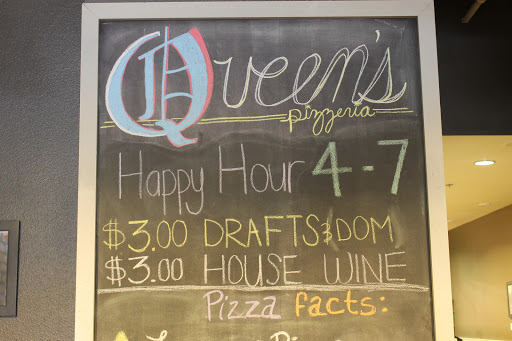 Queen's
pizzeria
Happy Hour 4-7
$3.00 DRAFTS & DOM
$3.00 HOUSE WINE
Pizza facts: